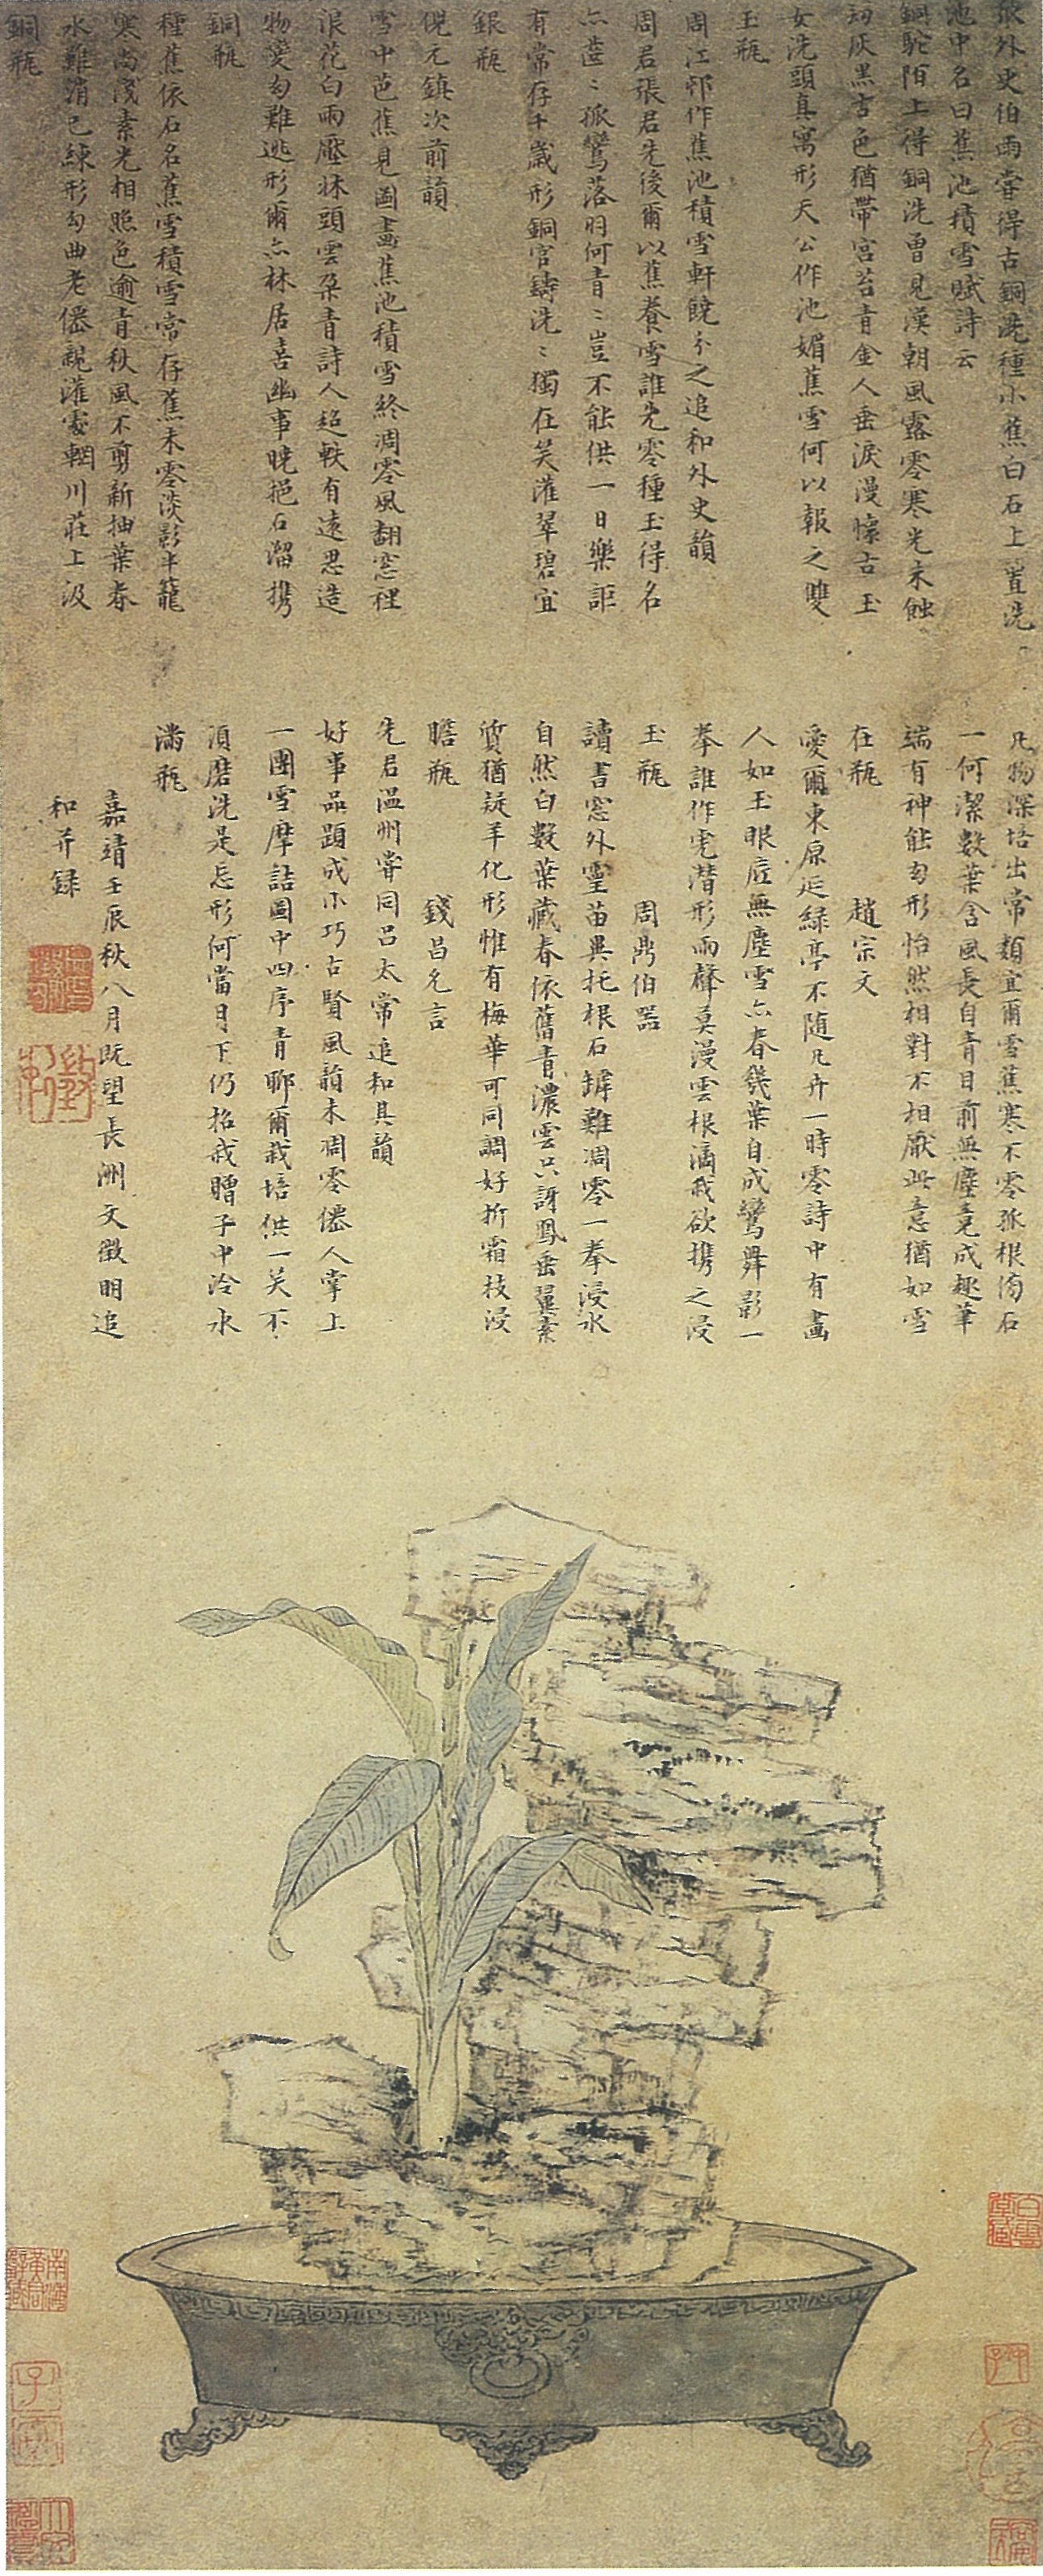 張外史伯雨嘗得古銅洗種小蕉白石上置洗
池中名曰蕉池積雪賦詩云
銅駝陌上得銅洗曾見漢朝風露零寒光未蝕
劫灰黑古色猶帶宮苔青金人垂淚漫懷古玉
女洗頭真寓形天公作池媚蕉雪何以報之雙
玉瓶
周江邨作蕉池積雪軒饒介之追和外史韻
周君張君先後爾以蕉養雪誰先零種玉得名
亦孤鸞落羽何青〻豈不能供一日樂詎
有常存千歲形銅官鑄洗〻獨在笑灌翠碧宜
銀瓶
倪元鎮次前韻
雪中芭蕉見圖畫蕉池積雪終凋零風翻窓裡
浪花白雨壓牀頭雲朶青詩人超軼有遠思造
物變幻難逃形爾亦林居喜幽事曉挹石溜携
銅瓶
種蕉依石名蕉雪積雪常存蕉未零淡影半籠
寒尚淺素光相照色逾青秋風不剪新抽葉春
水難消已練形勾曲老僊親灌處輞川莊上汲
銅瓶
凡物深培出常類宜爾雪蕉寒不零孤根倚石
一何潔數葉含風長自青目前無塵竟成趣筆
端有神能幻形怡然相對不相厭此意猶如雪
在瓶 趙宗文
愛爾東原延綠亭不隨凡卉一時零詩中有畫
人如玉眼底無塵雪亦春幾葉自成鸞舞影一
拳誰作虎潛形雨聲莫漫雲根滴我欲携之浸
玉瓶 周鼎伯器
讀書窓外靈苗異托根石罅難凋零一拳浸水
自然白數葉藏春依舊青濃雲只訝鳳垂翼素
質猶疑羊化形惟有梅華可同調好折霜枝浸
膽瓶 錢昌允言
先君溫州嘗同呂太常追和其韻
好事品題成小巧古賢風韻未凋零僊人掌上
一團雪摩詰圖中四序青聊爾栽培供一笑不
須磨洗是忘形何當月下仍招我贈子中泠水
滿瓶
嘉靖壬辰秋八月既望長洲文徵明追
和并錄